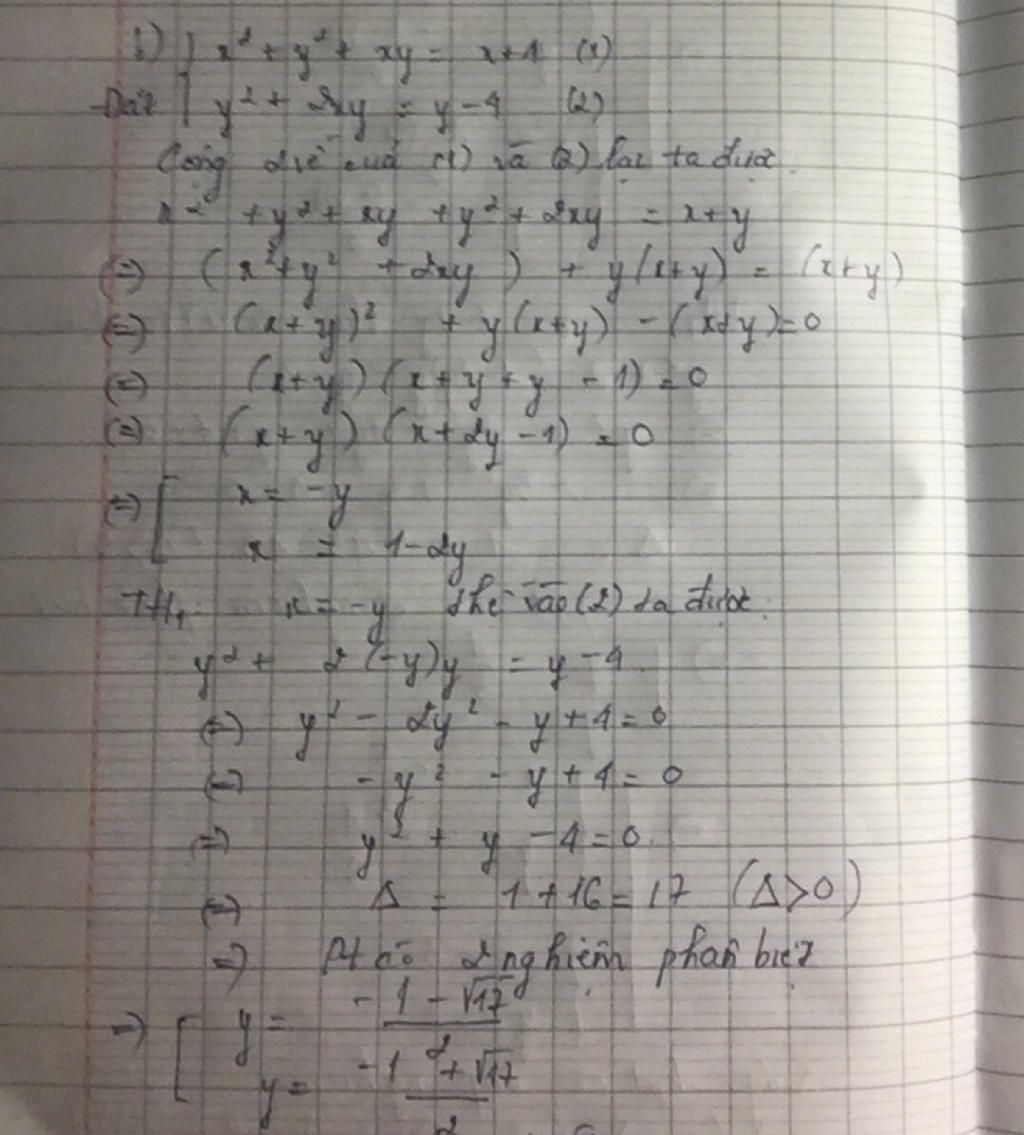 b) { x² + y² + xy = x + 4 (1)
Đặt { y² + 2xy = y - 4 (2)
Cộng 2 vế của (1) và (2) lại ta được
x² + y² + xy + y² + 2xy = x + y
(=) (x² + y² + 2xy) + y(x+y) = (x+y)
(=) (x+y)² + y(x+y) - (x+y) = 0
(=) (x+y)(x+y+y - 1) = 0
(=) (x+y)(x+2y-1) = 0
(=) [ x = -y
x = 1-2y
TH₁. x = -y thế vào (2) ta được:
y² + 2(-y)y = y - 4
(=) y² - 2y² - y + 4 = 0
(=) -y² - y + 4 = 0
(=) y² + y - 4 = 0
(=) Δ = 1 + 16 = 17 (Δ>0)
=) Pt có 2 nghiệm phân biệt
=) [ y = (-1 - √17)/2
y = (-1 + √17)/2